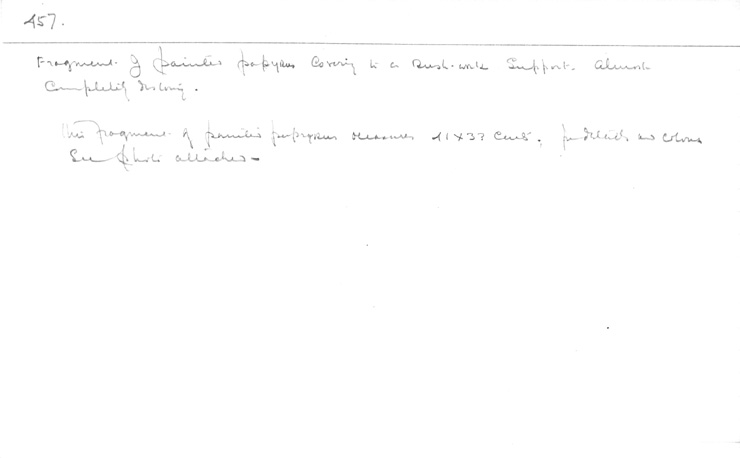 457.
Fragment of painted papyrus covering to a Rush-work Support. Almost
Completely destroy.
This fragment of painted papyrus measures 41 x 37 cent. for details and colours
See photo attached -